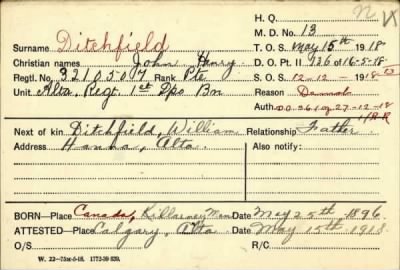 H. Q.
M. D. No. 13
Surname Ditchfield
T. O. S. May 15th 1918
Christian names John Henry
D. O. Pt. II 136 of 16-5-18
Regtl. No. 3210507 Rank Pte.
S. O. S. 12-12-1918
Unit Alta. Regt. 1st Dpo Bn
Reason Demob
Auth. DO 361 of 27-12-18
Next of kin Ditchfield, William Relationship Father
Address Hanna, Alta. Also notify:
BORN—Place Canada, Killarney Man Date May 25th 1896
ATTESTED—Place Calgary, Alta Date May 15th 1918
O/S R/C